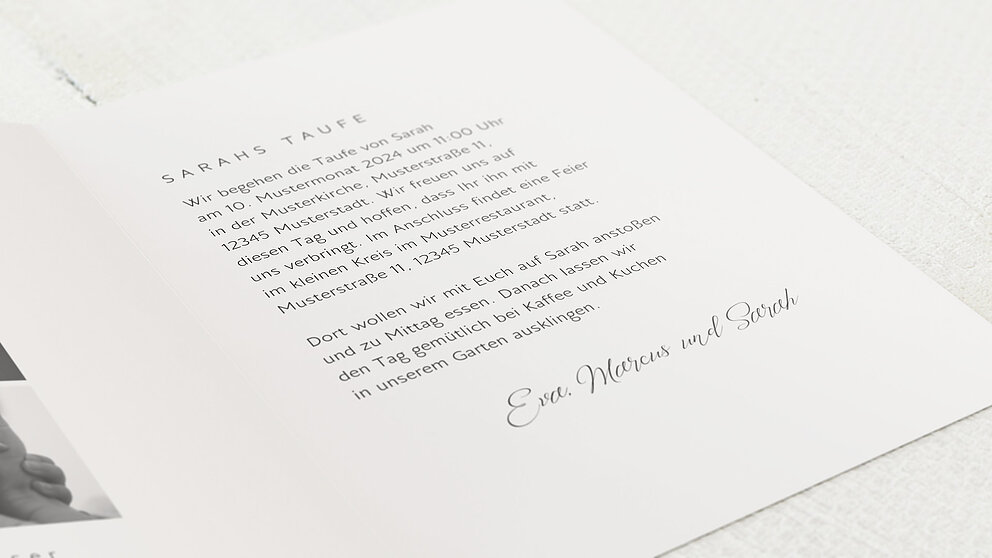 SARAHS TAUFE
Wir begehen die Taufe von Sarah
am 10. Mustermonat 2024 um 11:00 Uhr
in der Musterkirche, Musterstraße 11,
12345 Musterstadt. Wir freuen uns auf
diesen Tag und hoffen, dass Ihr ihn mit
uns verbringt. Im Anschluss findet eine Feier
im kleinen Kreis im Musterrestaurant,
Musterstraße 11, 12345 Musterstadt statt.
Dort wollen wir mit Euch auf Sarah anstoßen
und zu Mittag essen. Danach lassen wir
den Tag gemütlich bei Kaffee und Kuchen
in unserem Garten ausklingen.
Eva, Marcus und Sarah